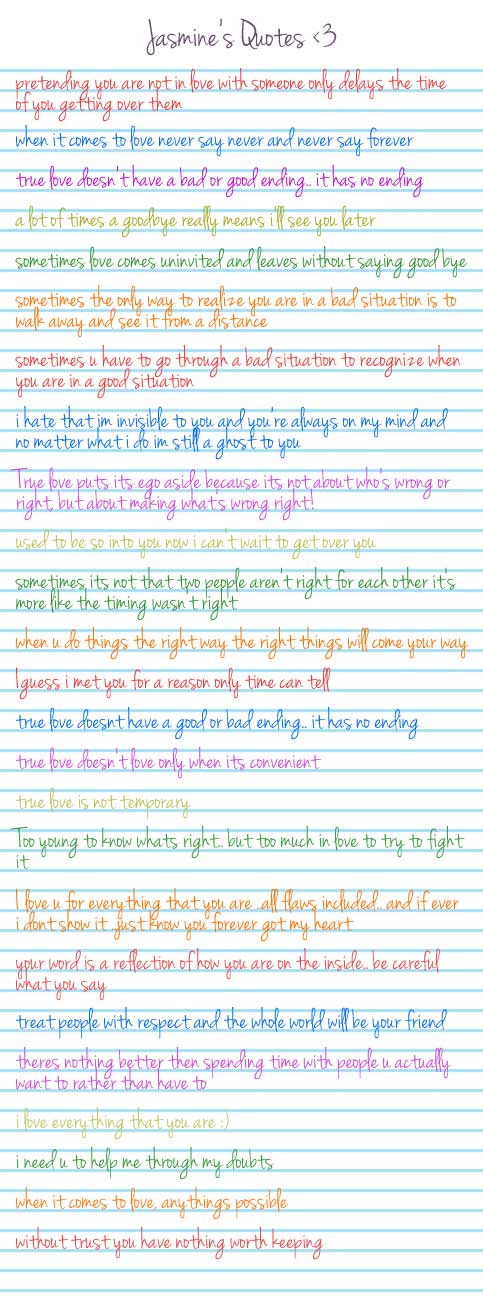 Jasmine's Quotes <3
pretending you are not in love with someone only delays the time
of you getting over them
when it comes to love never say never and never say forever
true love doesn't have a bad or good ending.. it has no ending
a lot of times a goodbye really means i'll see you later
sometimes love comes uninvited and leaves without saying good bye
sometimes the only way to realize you are in a bad situation is to
walk away and see it from a distance
sometimes u have to go through a bad situation to recognize when
you are in a good situation
i hate that im invisible to you and you're always on my mind and
no matter what i do im still a ghost to you
True love puts its ego aside because its not about who's wrong or
right, but about making what's wrong right!
used to be so into you now i can't wait to get over you
sometimes, its not that two people aren't right for each other it's
more like the timing wasn't right
when u do things the right way the right things will come your way
I guess i met you for a reason only time can tell
true love doesnt have a good or bad ending.. it has no ending
true love doesn't love only when its convenient
true love is not temporary
Too young to know whats right.. but too much in love to try to fight
it
I love u for everything that you are ..all flaws included.. and if ever
i dont show it ..just know you forever got my heart
your word is a reflection of how you are on the inside.. be careful
what you say
treat people with respect and the whole world will be your friend
theres nothing better then spending time with people u actually
want to rather than have to
i love everything that you are :)
i need u to help me through my doubts
when it comes to love, anythings possible
without trust you have nothing worth keeping